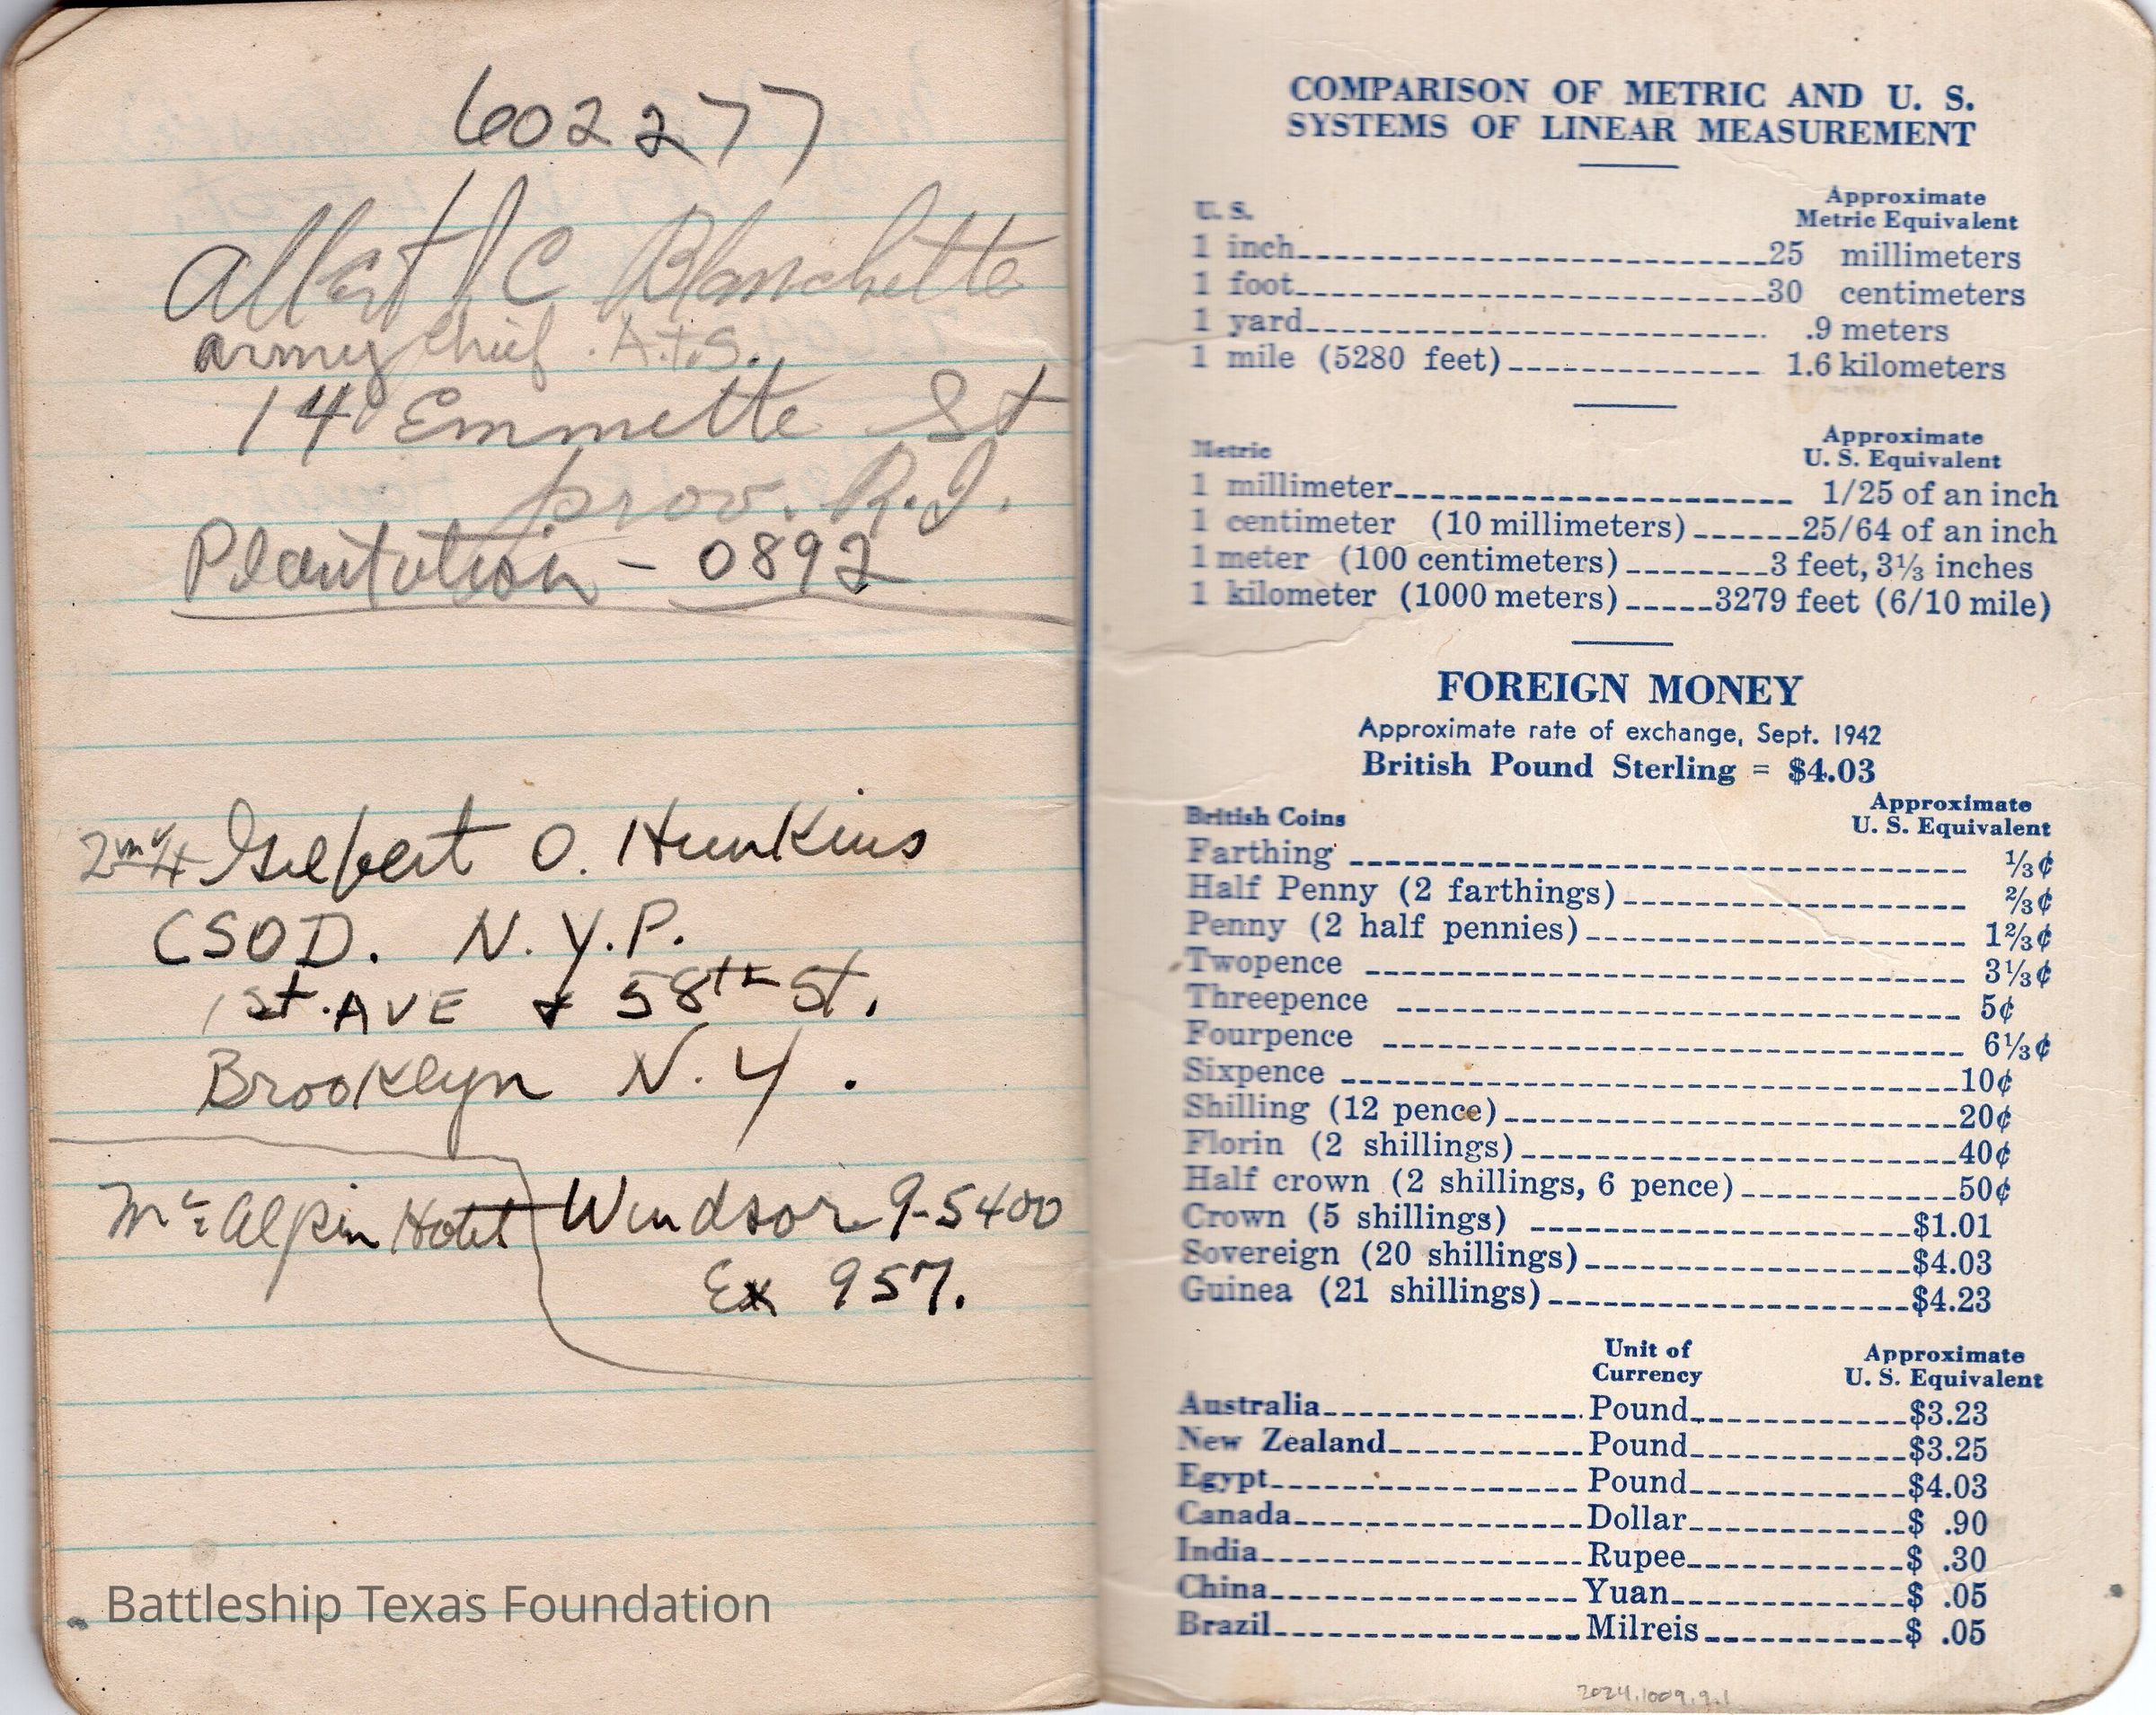 602277
Albert J C Blanchette
Army Chief. A.T.S.
14 Emmette St
prov. R.I.
Plantation - 0892
Gilbert O. Hunkins
CSOD. N.Y.P.
1st. AVE & 58TH St.
Brooklyn N.Y.
Mc Alpin Hotel
Windsor 9-5400
Ex 957.
Battleship Texas Foundation
COMPARISON OF METRIC AND U. S.
SYSTEMS OF LINEAR MEASUREMENT
U. S. Approximate
Metric Equivalent
1 inch 25 millimeters
1 foot 30 centimeters
1 yard .9 meters
1 mile (5280 feet) 1.6 kilometers
Metric Approximate
U. S. Equivalent
1 millimeter 1/25 of an inch
1 centimeter (10 millimeters) 25/64 of an inch
1 meter (100 centimeters) 3 feet, 3⅓ inches
1 kilometer (1000 meters) 3279 feet (6/10 mile)
FOREIGN MONEY
Approximate rate of exchange, Sept. 1942
British Pound Sterling = $4.03
British Coins Approximate
U. S. Equivalent
Farthing ⅓¢
Half Penny (2 farthings) ⅔¢
Penny (2 half pennies) 1⅔¢
Twopence 3⅓¢
Threepence 5¢
Fourpence 6⅓¢
Sixpence 10¢
Shilling (12 pence) 20¢
Florin (2 shillings) 40¢
Half crown (2 shillings, 6 pence) 50¢
Crown (5 shillings) $1.01
Sovereign (20 shillings) $4.03
Guinea (21 shillings) $4.23
Unit of Approximate
Currency U. S. Equivalent
Australia Pound $3.23
New Zealand Pound $3.25
Egypt Pound $4.03
Canada Dollar $ .90
India Rupee $ .30
China Yuan $ .05
Brazil Milreis $ .05
2024.1009.9.1